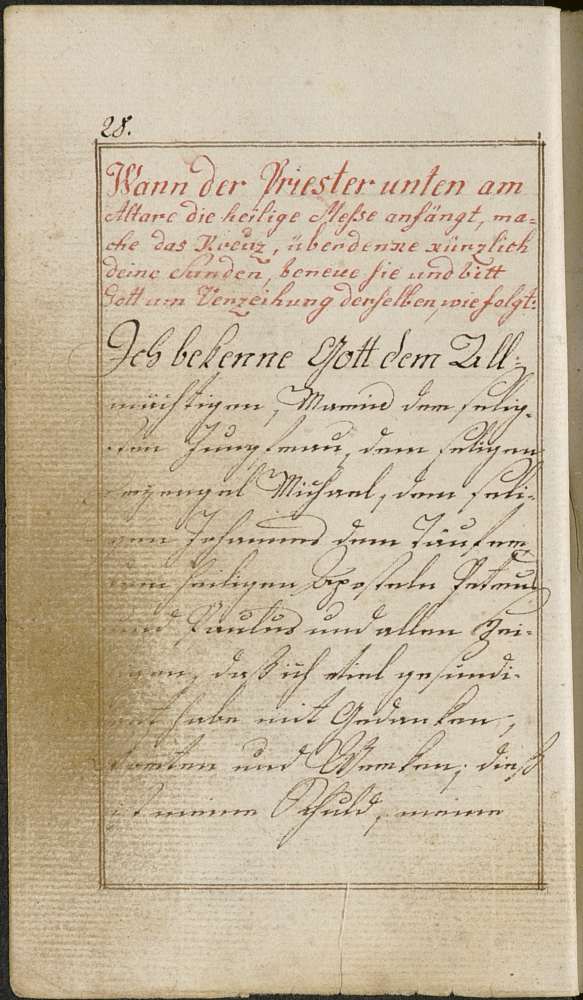 28.
Wann der Priester unten am
Altare die heilige Messe anfängt, ma=
che das Kreuz, überdenke kürzlich
deine Sünden, bereue sie und bitt
Gott um Verzeihung derselben, wie folgt:
Ich bekenne Gott dem All=
mächtigen, Maria der selig=
sten Jungfrau, dem seligen
Erzengel Michael, dem seli=
gen Johannes dem Täufer,
den heiligen Aposteln Petrus
und Paulus und allen Hei=
ligen, daß ich viel gesündi=
get habe mit Gedanken,
Worten und Werken; dieß
ist meine Schuld, meine